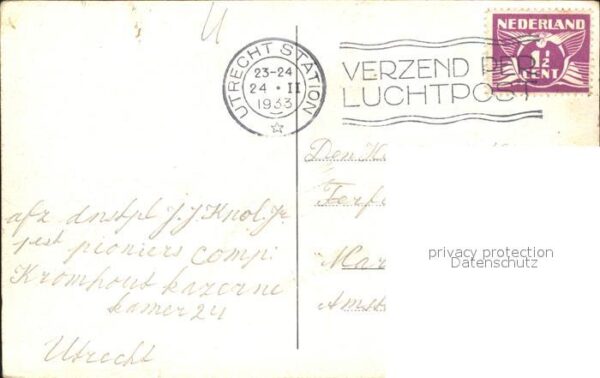 U
UTRECHT STATION
23-24
24 · II
1933
VERZEND PER
LUCHTPOST
NEDERLAND
1½
CENT
Den
afz dnstpl J. J. Knol. Jr
pioniers comp:
Kromhout kazerne
kamer 24
Utrecht
Mar
Amst
privacy protection
Datenschutz